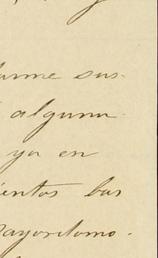 darme sus
alguna
ya en
ientos bas
mayordomo.